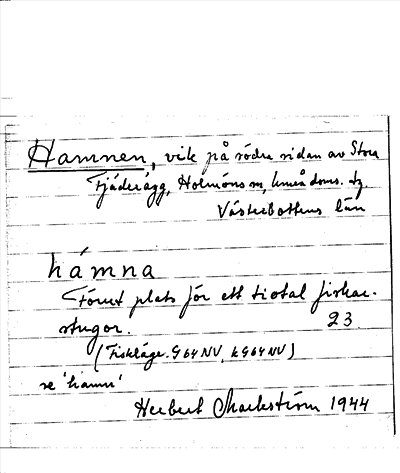 Hamnen, vik på södra sidan av Stora
Fjäderägg, Holmöns sn, Umeå doms. tg.
Västerbottens län
hámna
Förut plats för ett tiotal fiskar-
stugor. 23
(Fiskläge. G64NV, k G64NV)
se 'hamn'
Herbert Markström 1944